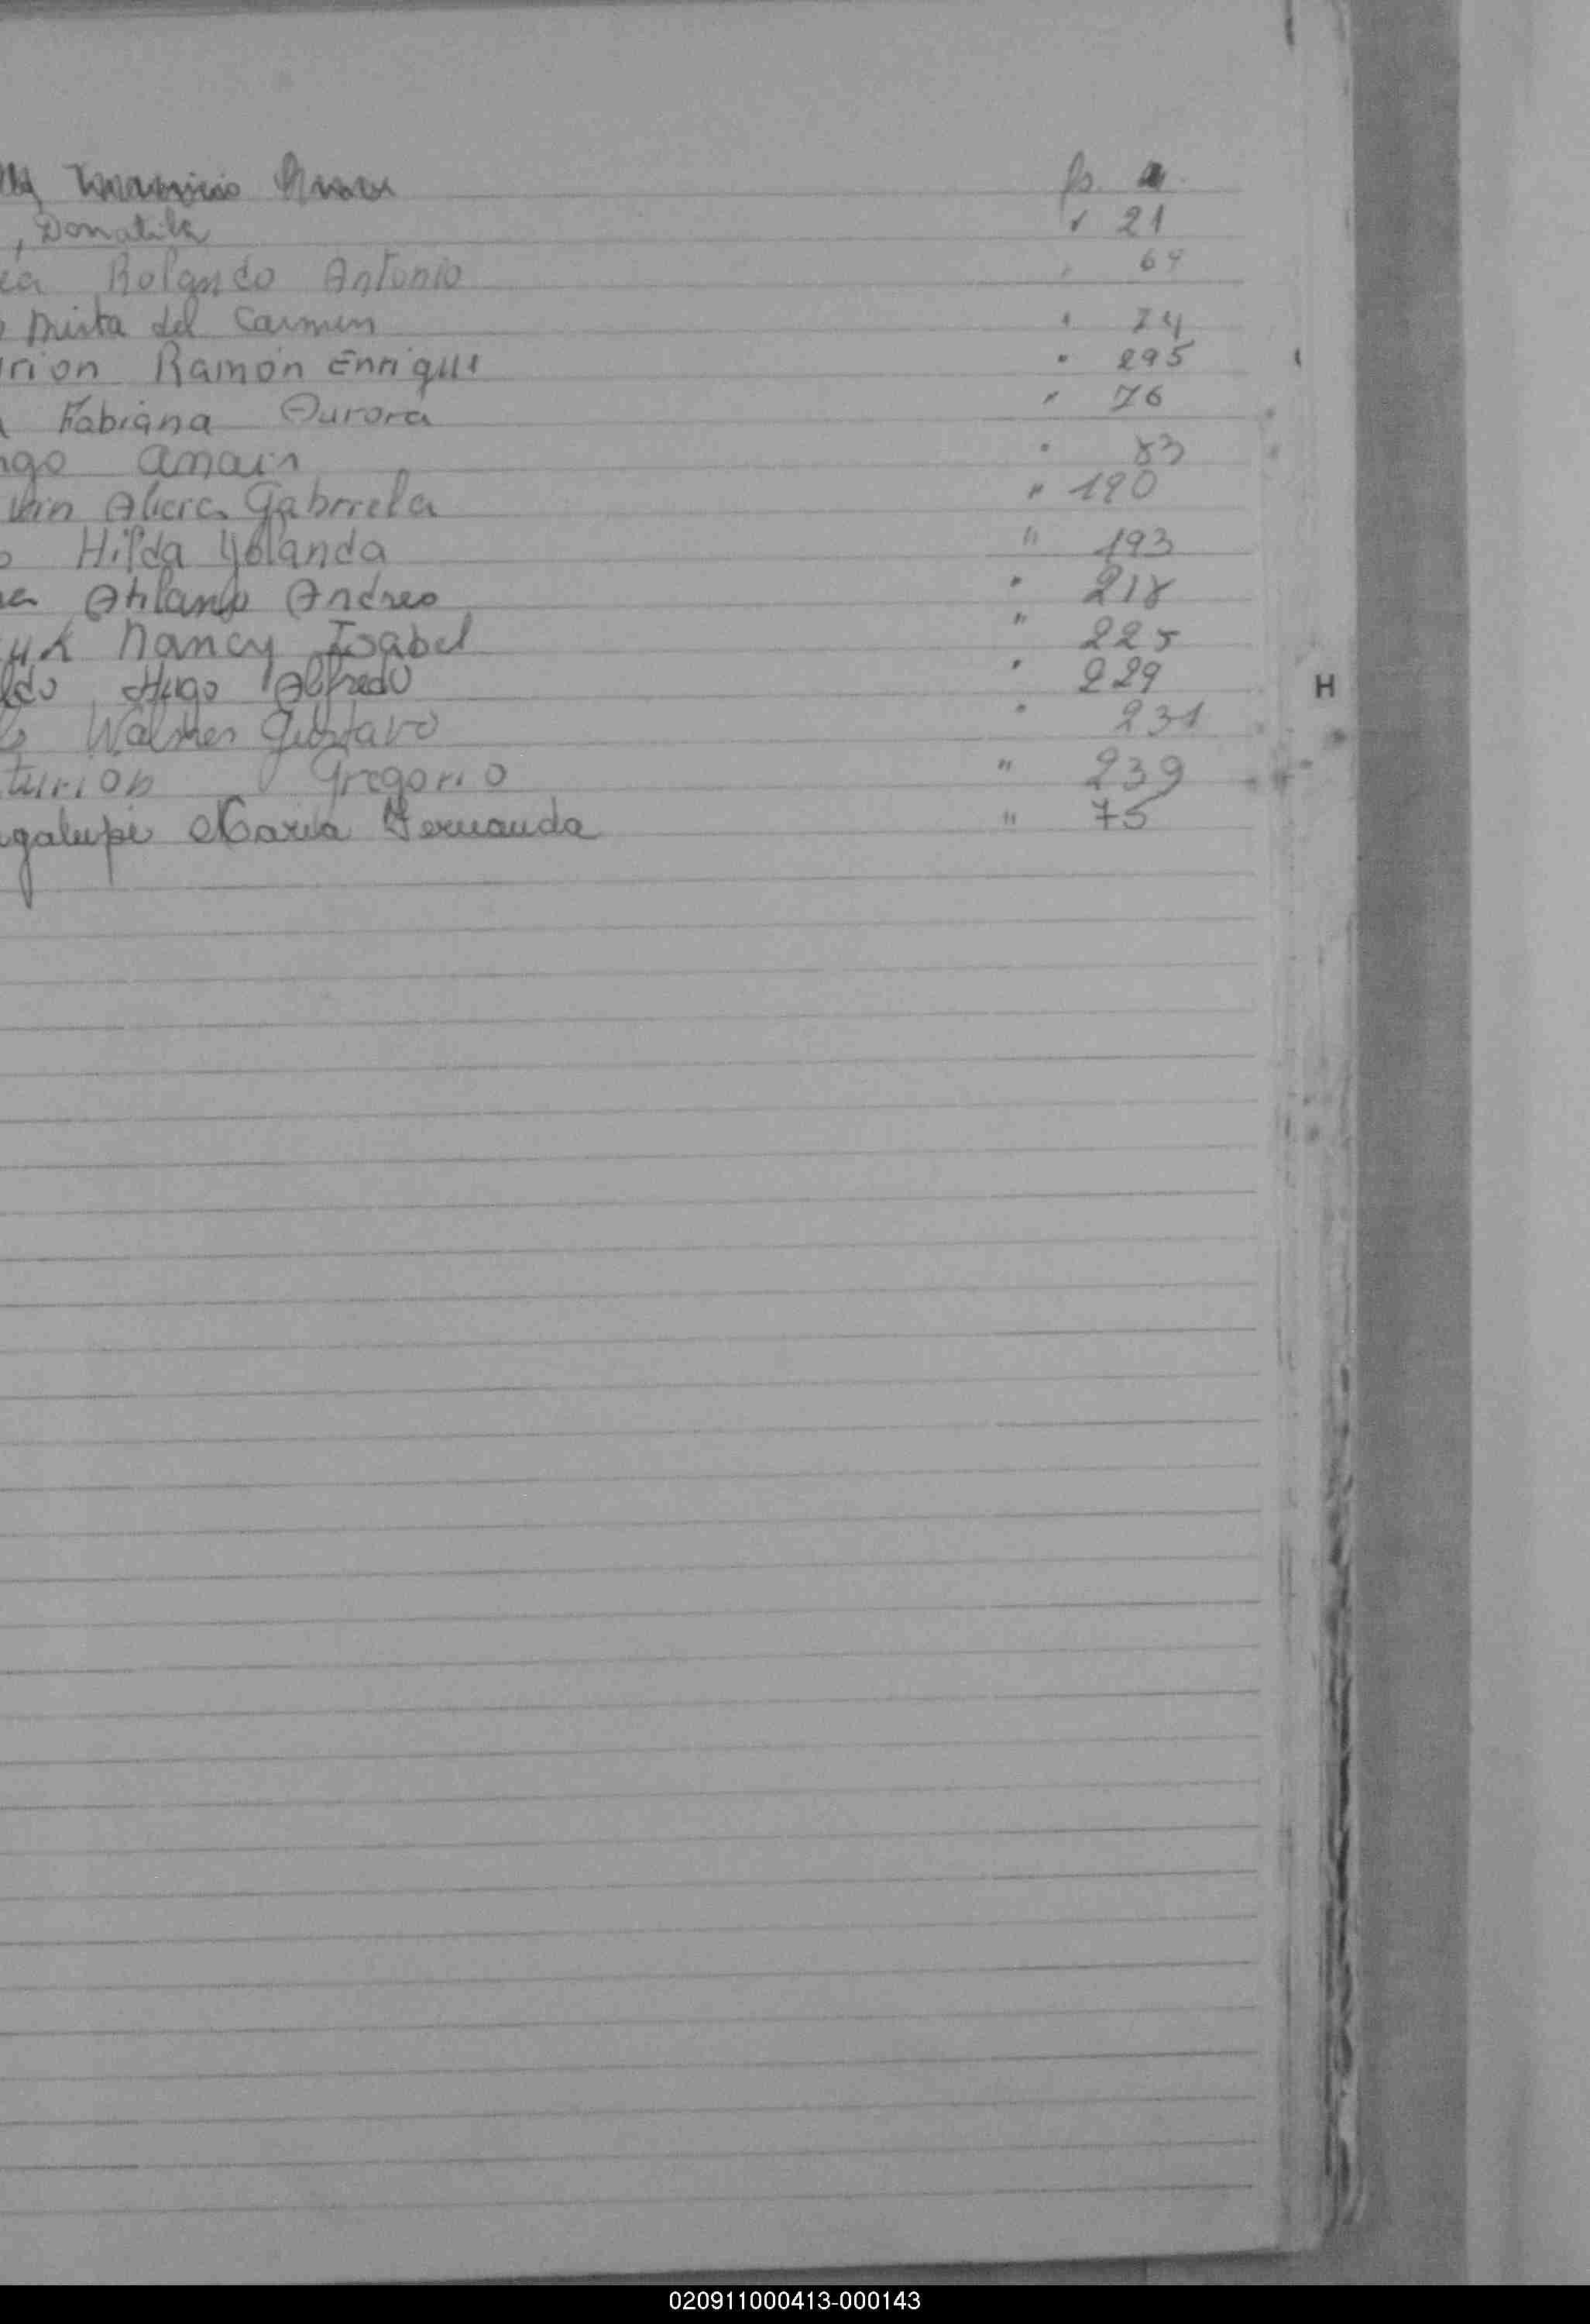 fs.
, Donatila " 21
Rolando Antonio " 69
Mirta del Carmen " 74
rion Ramón Enrique " 295
Fabiana Aurora " 76
ngo Anais " 83
Alicia Gabriela " 190
o Hilda Yolanda " 193
Atilano Andres " 218
Nancy Isabel " 225
ldo Hugo Alfredo " 229
H
Walther Gustavo " 231
turion Gregorio " 239
galupi Maria Fernanda " 75
020911000413-000143